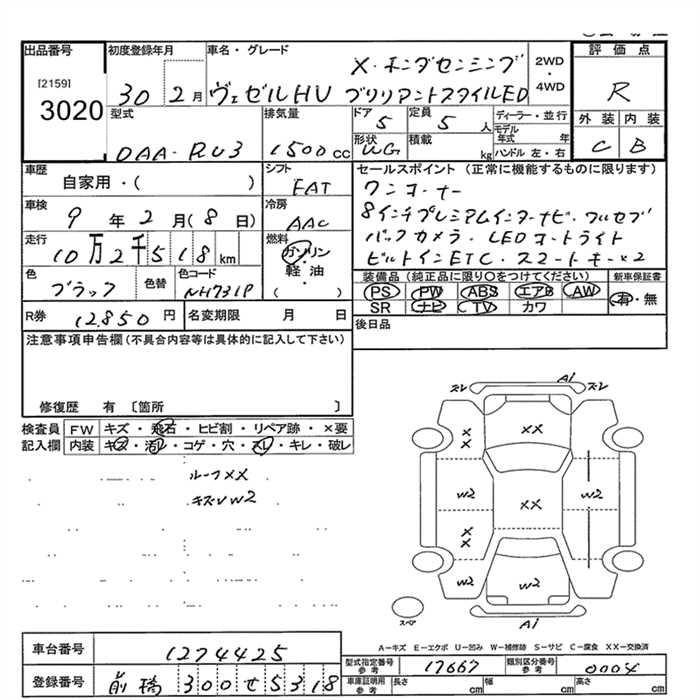 出品番号 初度登録年月 車名・グレード 評価点
[2159]
3020 30 2月 ヴェゼルHV X・ホンダセンシング
ブリリアントスタイルED
2WD
・
4WD
R
型式 排気量 ドア 定員 ディーラー・並行
DAA-RU3 1500cc 5 5人 モデル年式 年
形状 積載 ハンドル 左・右
WG kg
外装 内装
C B
車歴 シフト セールスポイント (正常に機能するものに限ります)
自家用・( ) FAT ワンオーナー
車検 冷房 8インチプレミアムインターナビ・フルセグ
9年2月(8日) AAC バックカメラ・LEDオートライト
走行 燃料 ビルトインETC・スマートキー×2
10万2千518km ガソリン・軽油・( )
色 色替 色コード 装備品 (純正品に限り○をつけてください) 新車保証書
ブラック NH731P PS PW ABS エアB AW 有・無
SR ナビ TV カワ
R券 12,850円 名変期限 月 日 後日品
注意事項申告欄(不具合内容等は具体的に記入して下さい)
修復歴 有 〔箇所 〕
検査員 FW キズ・飛石・ヒビ割・リペア跡・×要
記入欄 内装 キズ・汚レ・コゲ・穴・スレ・キレ・破レ
ルーフXX
キズUW2
ズレ Ai ズレ
X XX
X
W2 XX W2
X
X
W2 W2
スペア Ai
A−キズ E−エクボ U−凹み W−補修跡 S−サビ C−腐食 XX−交換済
車台番号 1274425
型式指定番号 参考 17667 類別区分番号 参考 0004
登録番号 前橋 300 せ 5318
車庫証明用 参考 長さ cm 幅 cm 高さ cm